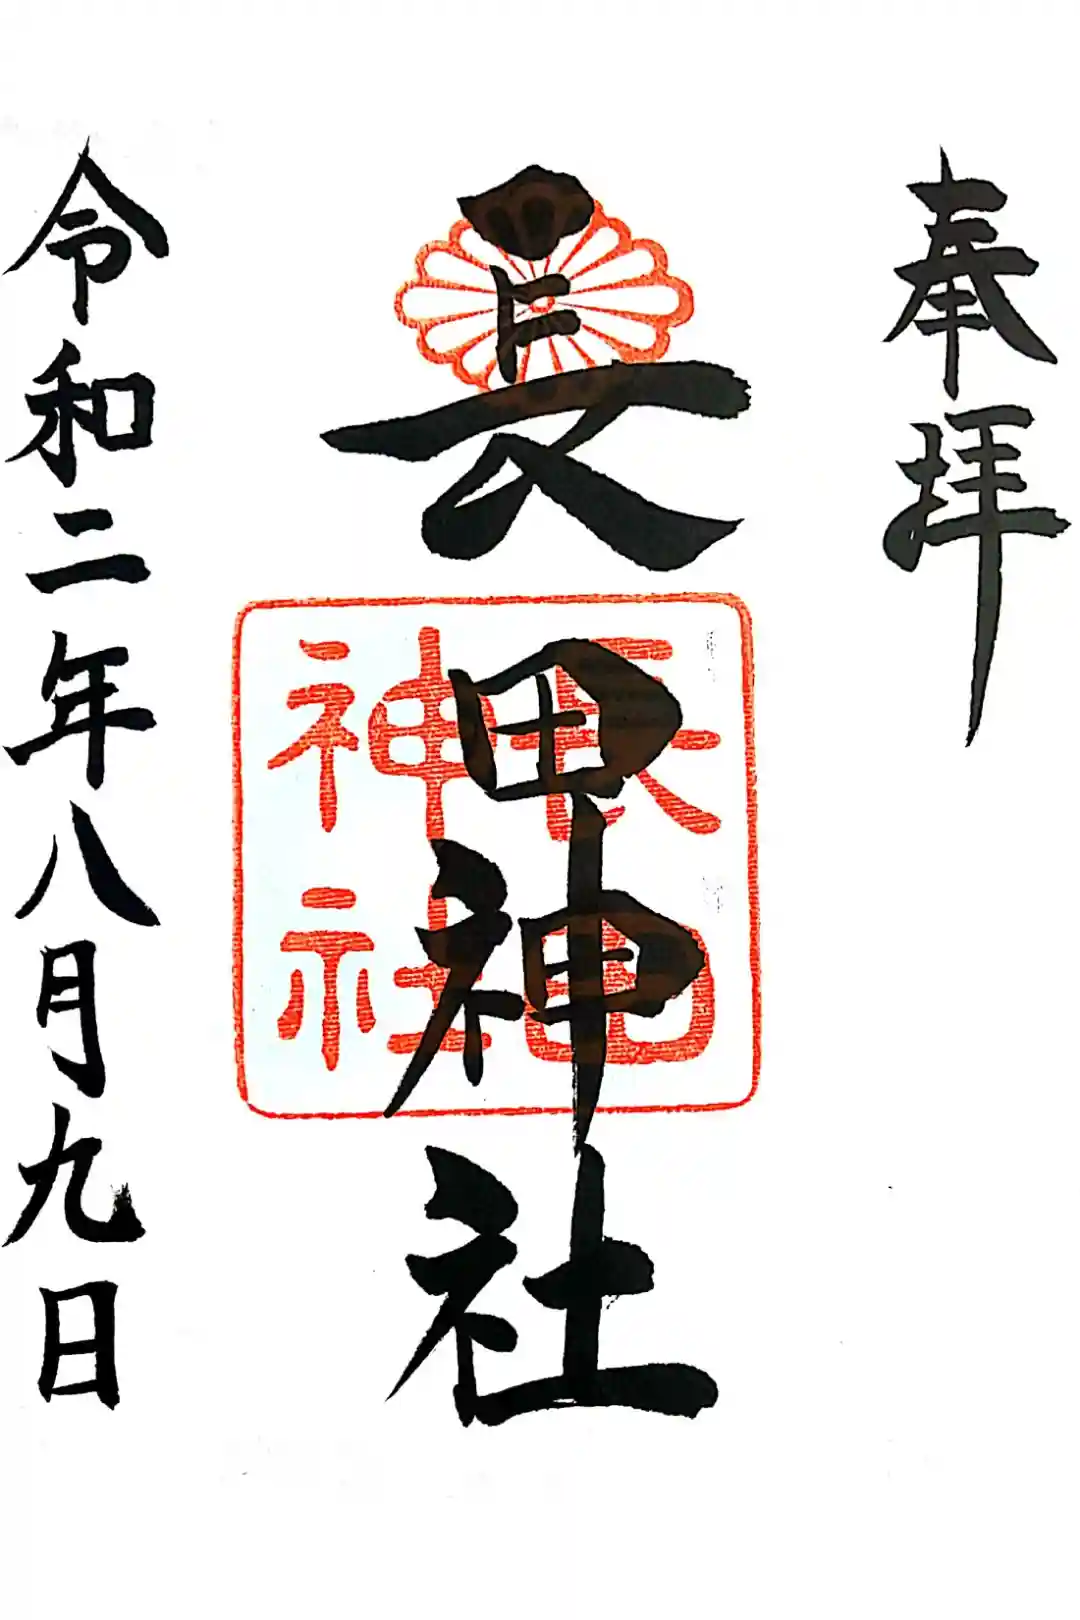 奉拝
長田神社
長田神社
令和二年八月九日